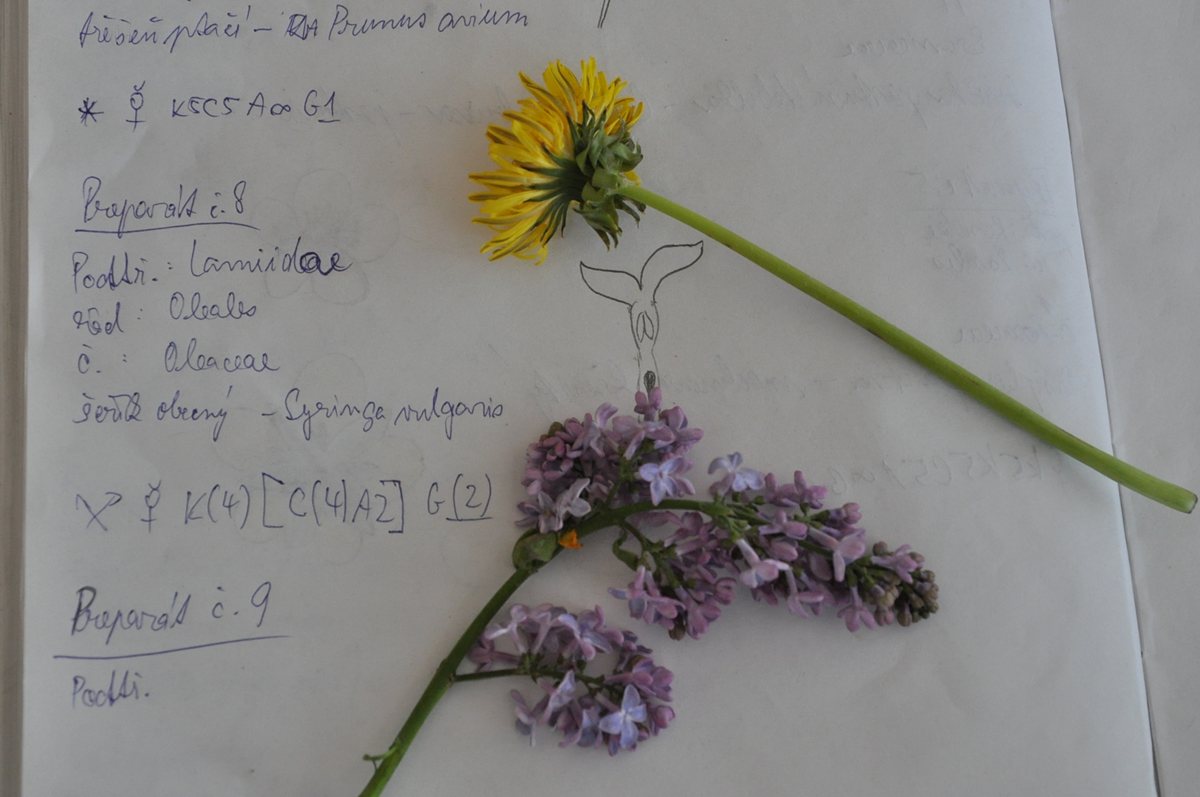 třešeň ptačí – Prunus avium
* ⚥ K5C5 A∞ G1
Preparát č. 8
Podtř.: Lamiidae
řád: Oleales
č.: Oleaceae
šeřík obecný – Syringa vulgaris
⚥ K(4) [C(4)A2] G(2)
Preparát č. 9
Podtř.